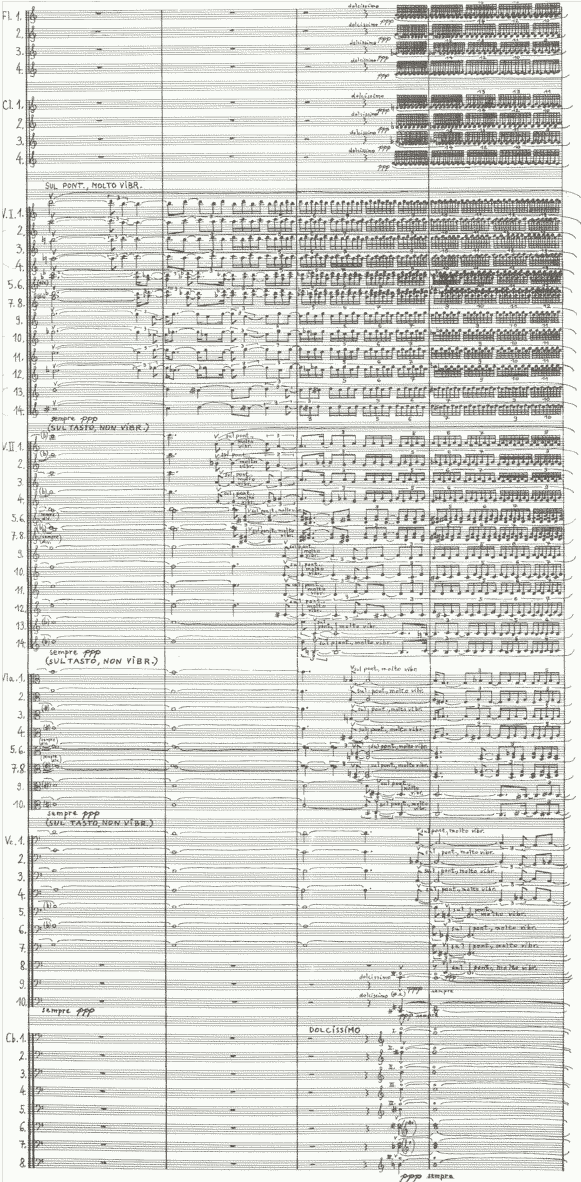 Fl. 1.
dolcissimo
ppp
2.
dolcissimo
ppp
3.
dolcissimo
ppp
4.
dolcissimo
ppp
Cl. 1.
dolcissimo
ppp
2.
dolcissimo
ppp
3.
dolcissimo
ppp
4.
dolcissimo
ppp
SUL PONT., MOLTO VIBR.
V.I. 1.
2.
3.
4.
5.6.
7.8.
9.
10.
11.
12.
13.
14.
sempre ppp
(SUL TASTO, NON VIBR.)
V.II 1.
sul pont. molto vibr.
2.
sul pont. molto vibr.
3.
sul pont. molto vibr.
4.
sul pont. molto vibr.
5.6.
sul pont., molto vibr.
7.8.
sul pont., molto vibr.
9.
sul pont. molto vibr.
10.
sul pont. molto vibr.
11.
sul pont. molto vibr.
12.
sul pont. molto vibr.
13.
sul pont., molto vibr.
14.
sul pont., molto vibr.
sempre ppp
(SUL TASTO, NON VIBR.)
Vla. 1.
sul pont., molto vibr.
2.
sul pont., molto vibr.
3.
sul pont., molto vibr.
4.
sul pont., molto vibr.
5.6.
sul pont., molto vibr.
7.8.
sul pont., molto vibr.
9.
sul pont., molto vibr.
10.
sul pont., molto vibr.
sempre ppp
(SUL TASTO, NON VIBR.)
Vc. 1.
sul pont., molto vibr.
2.
sul pont., molto vibr.
3.
sul pont., molto vibr.
4.
sul pont., molto vibr.
5.
sul pont., molto vibr.
6.
sul pont., molto vibr.
7.
sul pont., molto vibr.
8.
sul pont., molto vibr.
9.
dolcissimo
ppp sempre
10.
dolcissimo
ppp sempre
sempre ppp
DOLCISSIMO
Cb. 1.
2.
3.
4.
5.
6.
7.
8.
ppp sempre